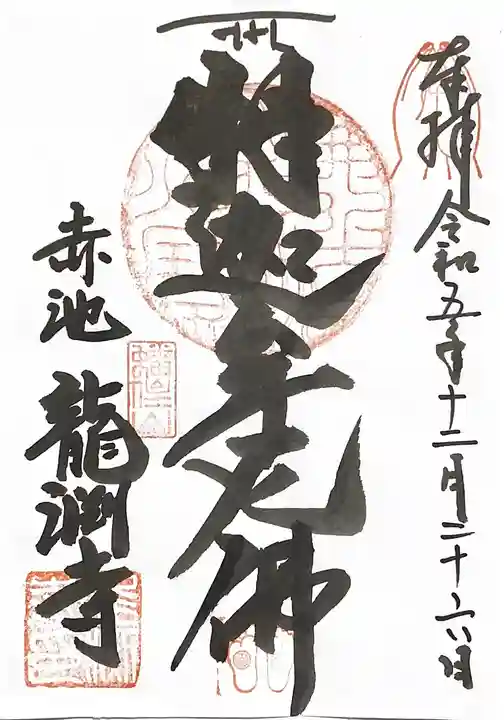 奉拝 令和五年十二月二十六日
釈迦牟尼佛
赤池 龍淵寺